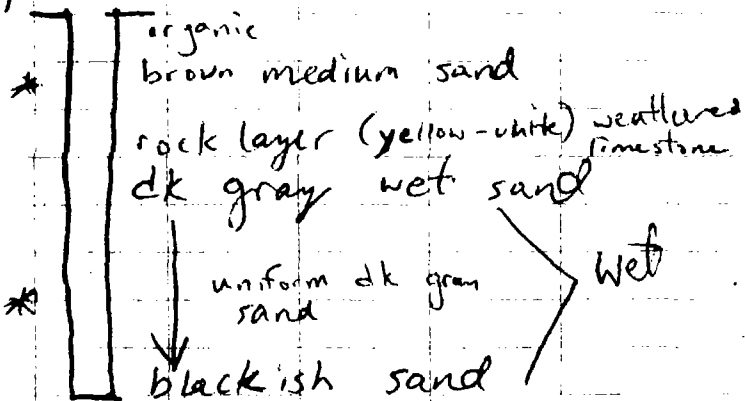 organic
brown medium sand
rock layer (yellow-white) weathered
limestone
dk gray wet sand
wet
uniform dk gray
sand
blackish sand